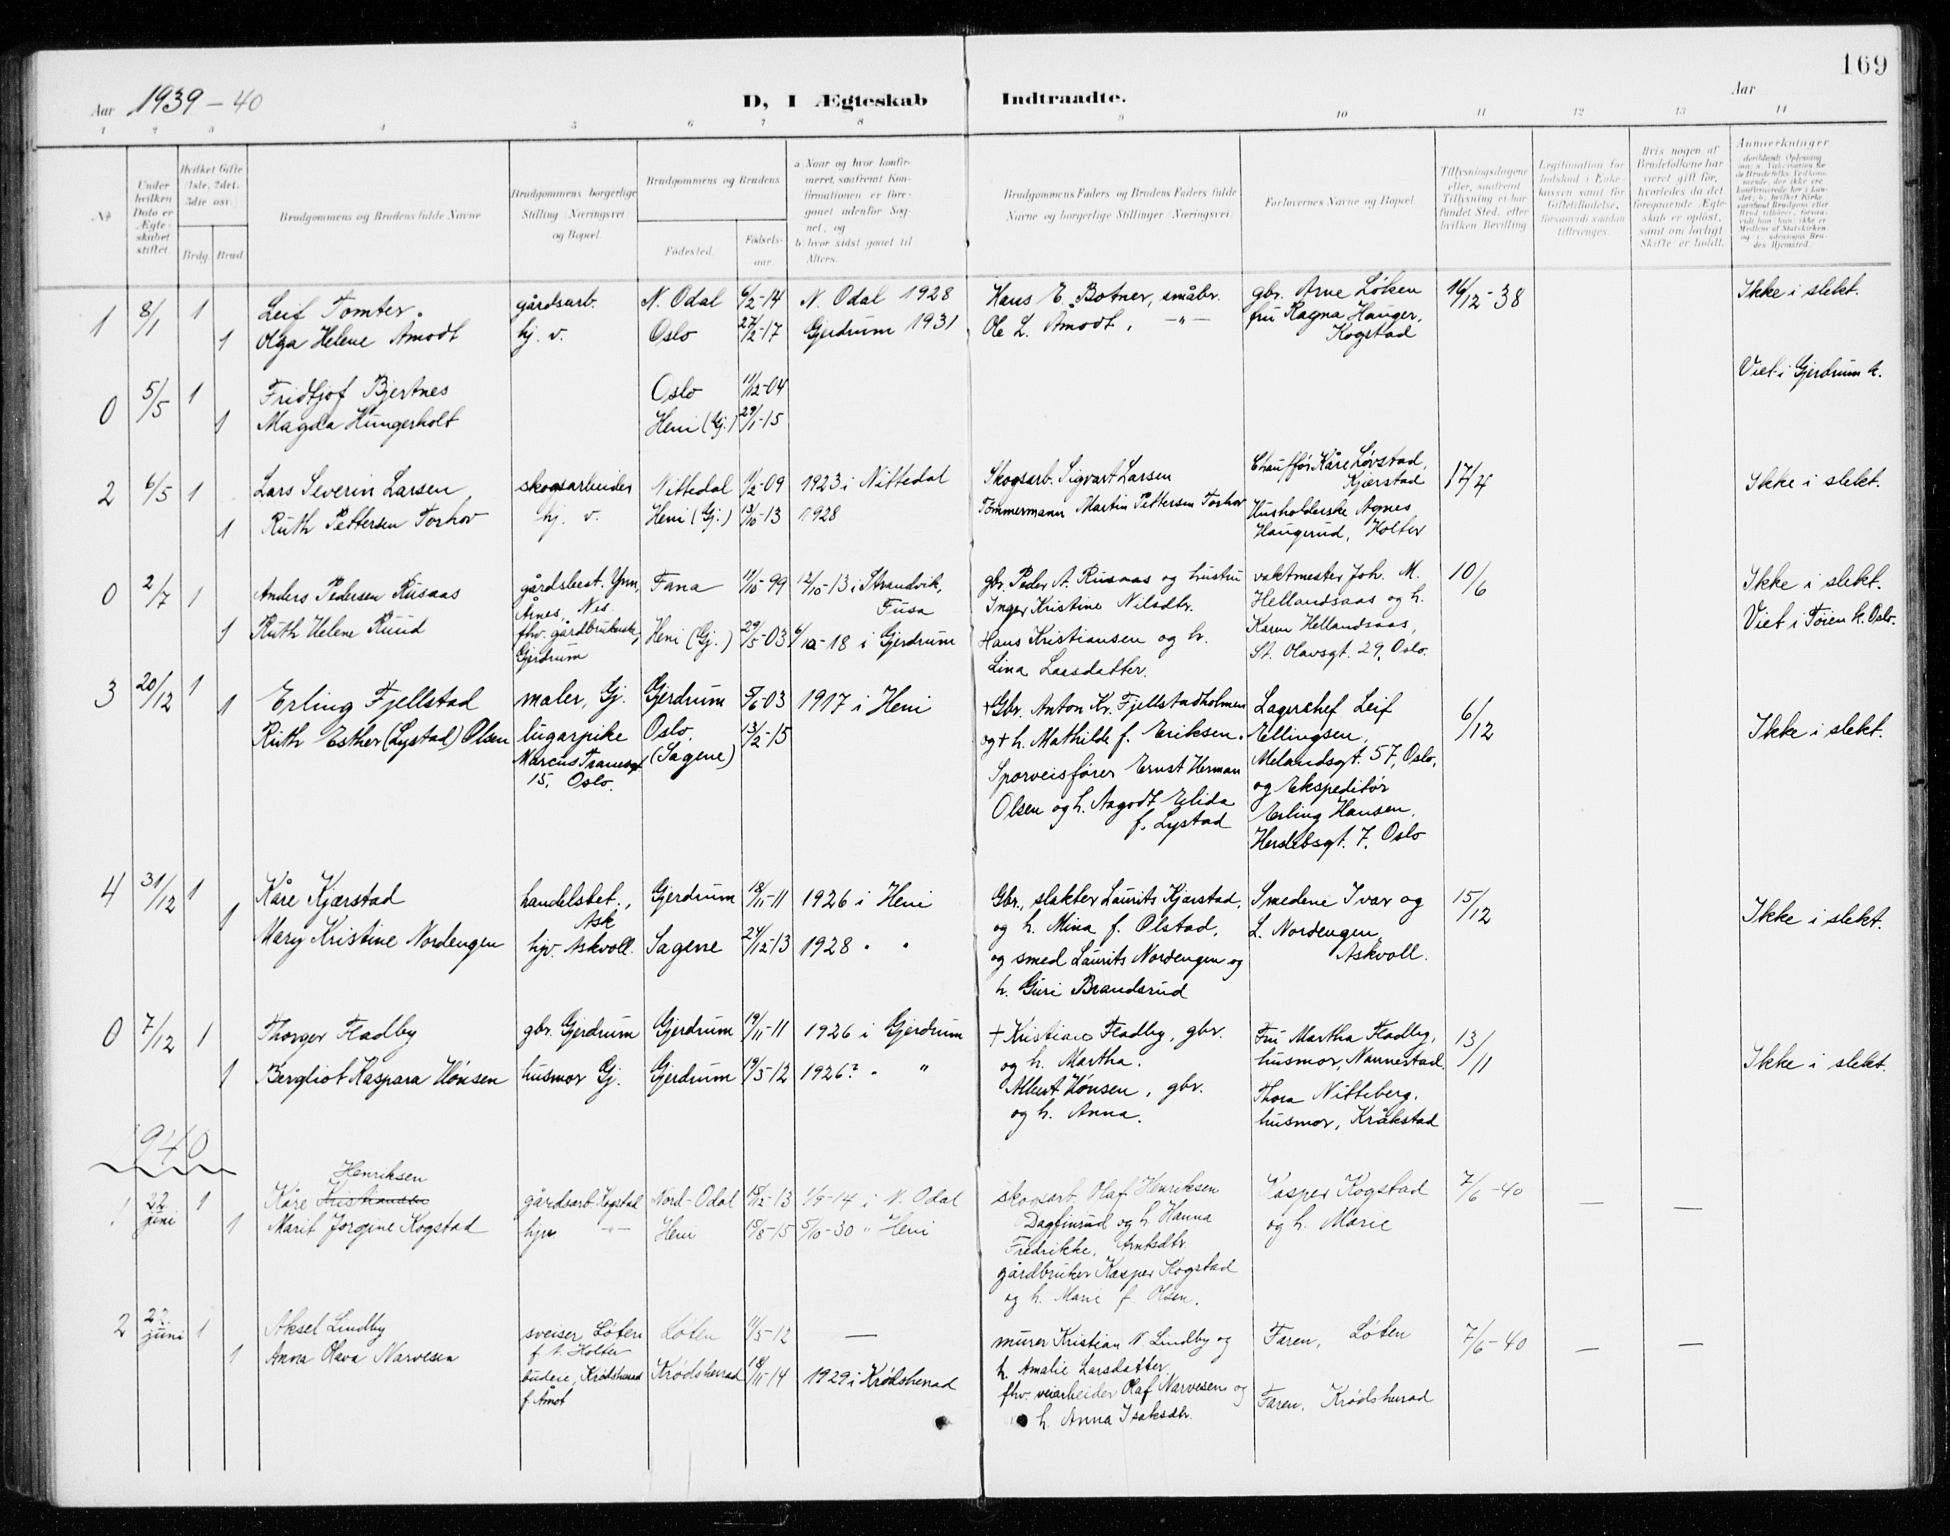 169
Aar 1939-40
D, I Ægteskab Indtraadte.
Aar
1 2 3 4 5 6 7 8 9 10 11 12 13 14
No
Under hvilken Dato er Ægteskabet stiftet.
Hvilket Gifte (1ste, 2det, 3die osv.)
Brdg. Brud.
Brudgommens og Brudens fulde Navne
Brudgommens borgerlige Stilling (Næringsvei) og Bopæl.
Brudgommens og Brudens
Fødested.
Fødselsaar.
a. Naar og hvor konfirmeret, saafremt Konfirmationen er foregaaet udenfor Sognet, og
b. hvor sidst gaaet til Alters.
Brudgommens Faders og Brudens Faders fulde Navne og borgerlige Stillinger (Næringsvei.
Forlovernes Navne og Bopæl.
Tillysningsdagene eller, saafremt Tillysning ei har fundet Sted, efter hvilken Bevilling
Legitimation for Indskud i Enkekassen samt for Giftetilladelse, forsaavidt saadan tiltrænges.
Hvis nogen af Brudefolkene har været gift før, hvorledes da det foregaaende Ægteskab er opløst, samt om lovligt Skifte er holdt.
Anmerkninger
1 8/1 1 Leif Tomter. gårdsarb. N. Odal 6/2-14 N. Odal 1928 Hans E. Botner, småbr. gbr. Arne Løken 16/12-38 Ikke i slekt.
1 Olga Helene Amodt hj. v. Oslo 27/2-17 Gjerdrum 1931 Ole L. Amodt, -"- fru Ragna Hauger,
Kogstad
Viet i Gjerdrum k.
0 5/5 1 Fridtjof Bjertnes Oslo 11/12-04
1 Magda Hungerholt Heni (Gj.) 29/1-15
2 6/5 1 Lars Severin Larsen skogsarbeider Nittedal 11/2-09 1923 i Nittedal Skogsarb. Sigvart Larsen Chauffør Kåre Løvstad, 17/4 Ikke i slekt.
Kjærstad
1 Ruth Pettersen Torhov hj. v. Heni (Gj.) 13/10-13 1928 Tømmermann Martin Pettersen Torhov Husholderske Agnes
Haugerud, Holter
0 2/7 1 Anders Pedersen Rusaas gårdsbest. Ynn, Fana 11/10-99 12/10-13 i Strandvik, gbr. Peder A. Rusaas og hustru vaktmester Joh. M. 10/6 Ikke i slekt.
Årnes, Nes. Fusa Inger Kristine Nilsdtr. Hellandsaas og h. Viet i Tøien k. Oslo.
1 Ruth Helene Ruud fhv. gårdbrukerske, Heni (Gj.) 29/5-03 6/10-18 i Gjerdrum Hans Kristiansen og h. Karen Hellandsaas,
Gjerdrum Lina Larsdatter. St. Olavsgt. 29, Oslo.
3 20/12 1 Erling Fjellstad maler, Gj. Gjerdrum 5/6-03 1917 i Heni +Gbr. Anton Kr. Fjellstadholmen Lagerchef Leif 6/12 Ikke i slekt.
1 Ruth Esther (Lystad) Olsen lugarpike Oslo. 13/2-15 og + h. Mathilde f. Eriksen. Ellingsen,
Marcus Tranesgt (Sagene) Sporveisfører Ernst Herman Melandsgt. 57, Oslo,
15, Oslo. Olsen og h. Aagodt Elida og Ekspeditør
f. Lystad Erling Hansen,
Herslebsgt. 7, Oslo
4 31/12 1 Kåre Kjærstad handelsbet., Gjerdrum 18/11-11 1926 i Heni Gbr., slakter Laurits Kjærstad, Smedene Ivar og 15/12 Ikke i slekt.
Ask og h. Mina f. Olstad,
1 Mary Kristine Nordengen hjv. Askvoll. Sagene 24/12-13 1928 " " og smed Laurits Nordengen og L. Nordengen,
h. Guri Brandsrud Askvoll.
0 7/12 1 Thorger Fladby gbr. Gjerdrum Gjerdrum 19/11-11 1926 i Gjerdrum + Kristian Fladby, gbr. Fru Martha Fladby, 13/11 Ikke i slekt.
og h. Martha. husmor, Nannestad.
1 Bergliot Kaspara Hønsen husmor Gj. Gjerdrum 19/5-12 1926? " " Albert Hønsen, gbr. Thora Nitteberg,
og h. Anna. husmor, Kråkstad
1940
Henriksen
1 22 juni 1 Kåre gårdsarb. Kogstad Nord-Odal 15/12-13 i N. Odal skogsarb. Olaf Henriksen Kasper Kogstad 7/6-40 — —
1 Marit Jorgine Kogstad hjv -"- Heni 15/8-15 5/10-30 " Heni Dagfinrud og h. Hanna og h. Marie
Fredrikke, Arntsdtr.
gårdbruker Kasper Kogstad
og h. Marie f. Olsen.
2 22. juni 1 Aksel Lindby sveiser Løten Løten 11/5-12 — murer Kristian N. Lindby og Faren, Løten 7/6-40 — —
f. t. Holter h. Amalie Larsdatter
1 Anna Olava Narvesen budeie, Krødsherad Krødsherad 18/11-14 1929 i Krødsherad fhv. veiarbeider Olaf Narvesen og Faren, Krødsherad
f. Åmot h. Anna Isaksdtr.